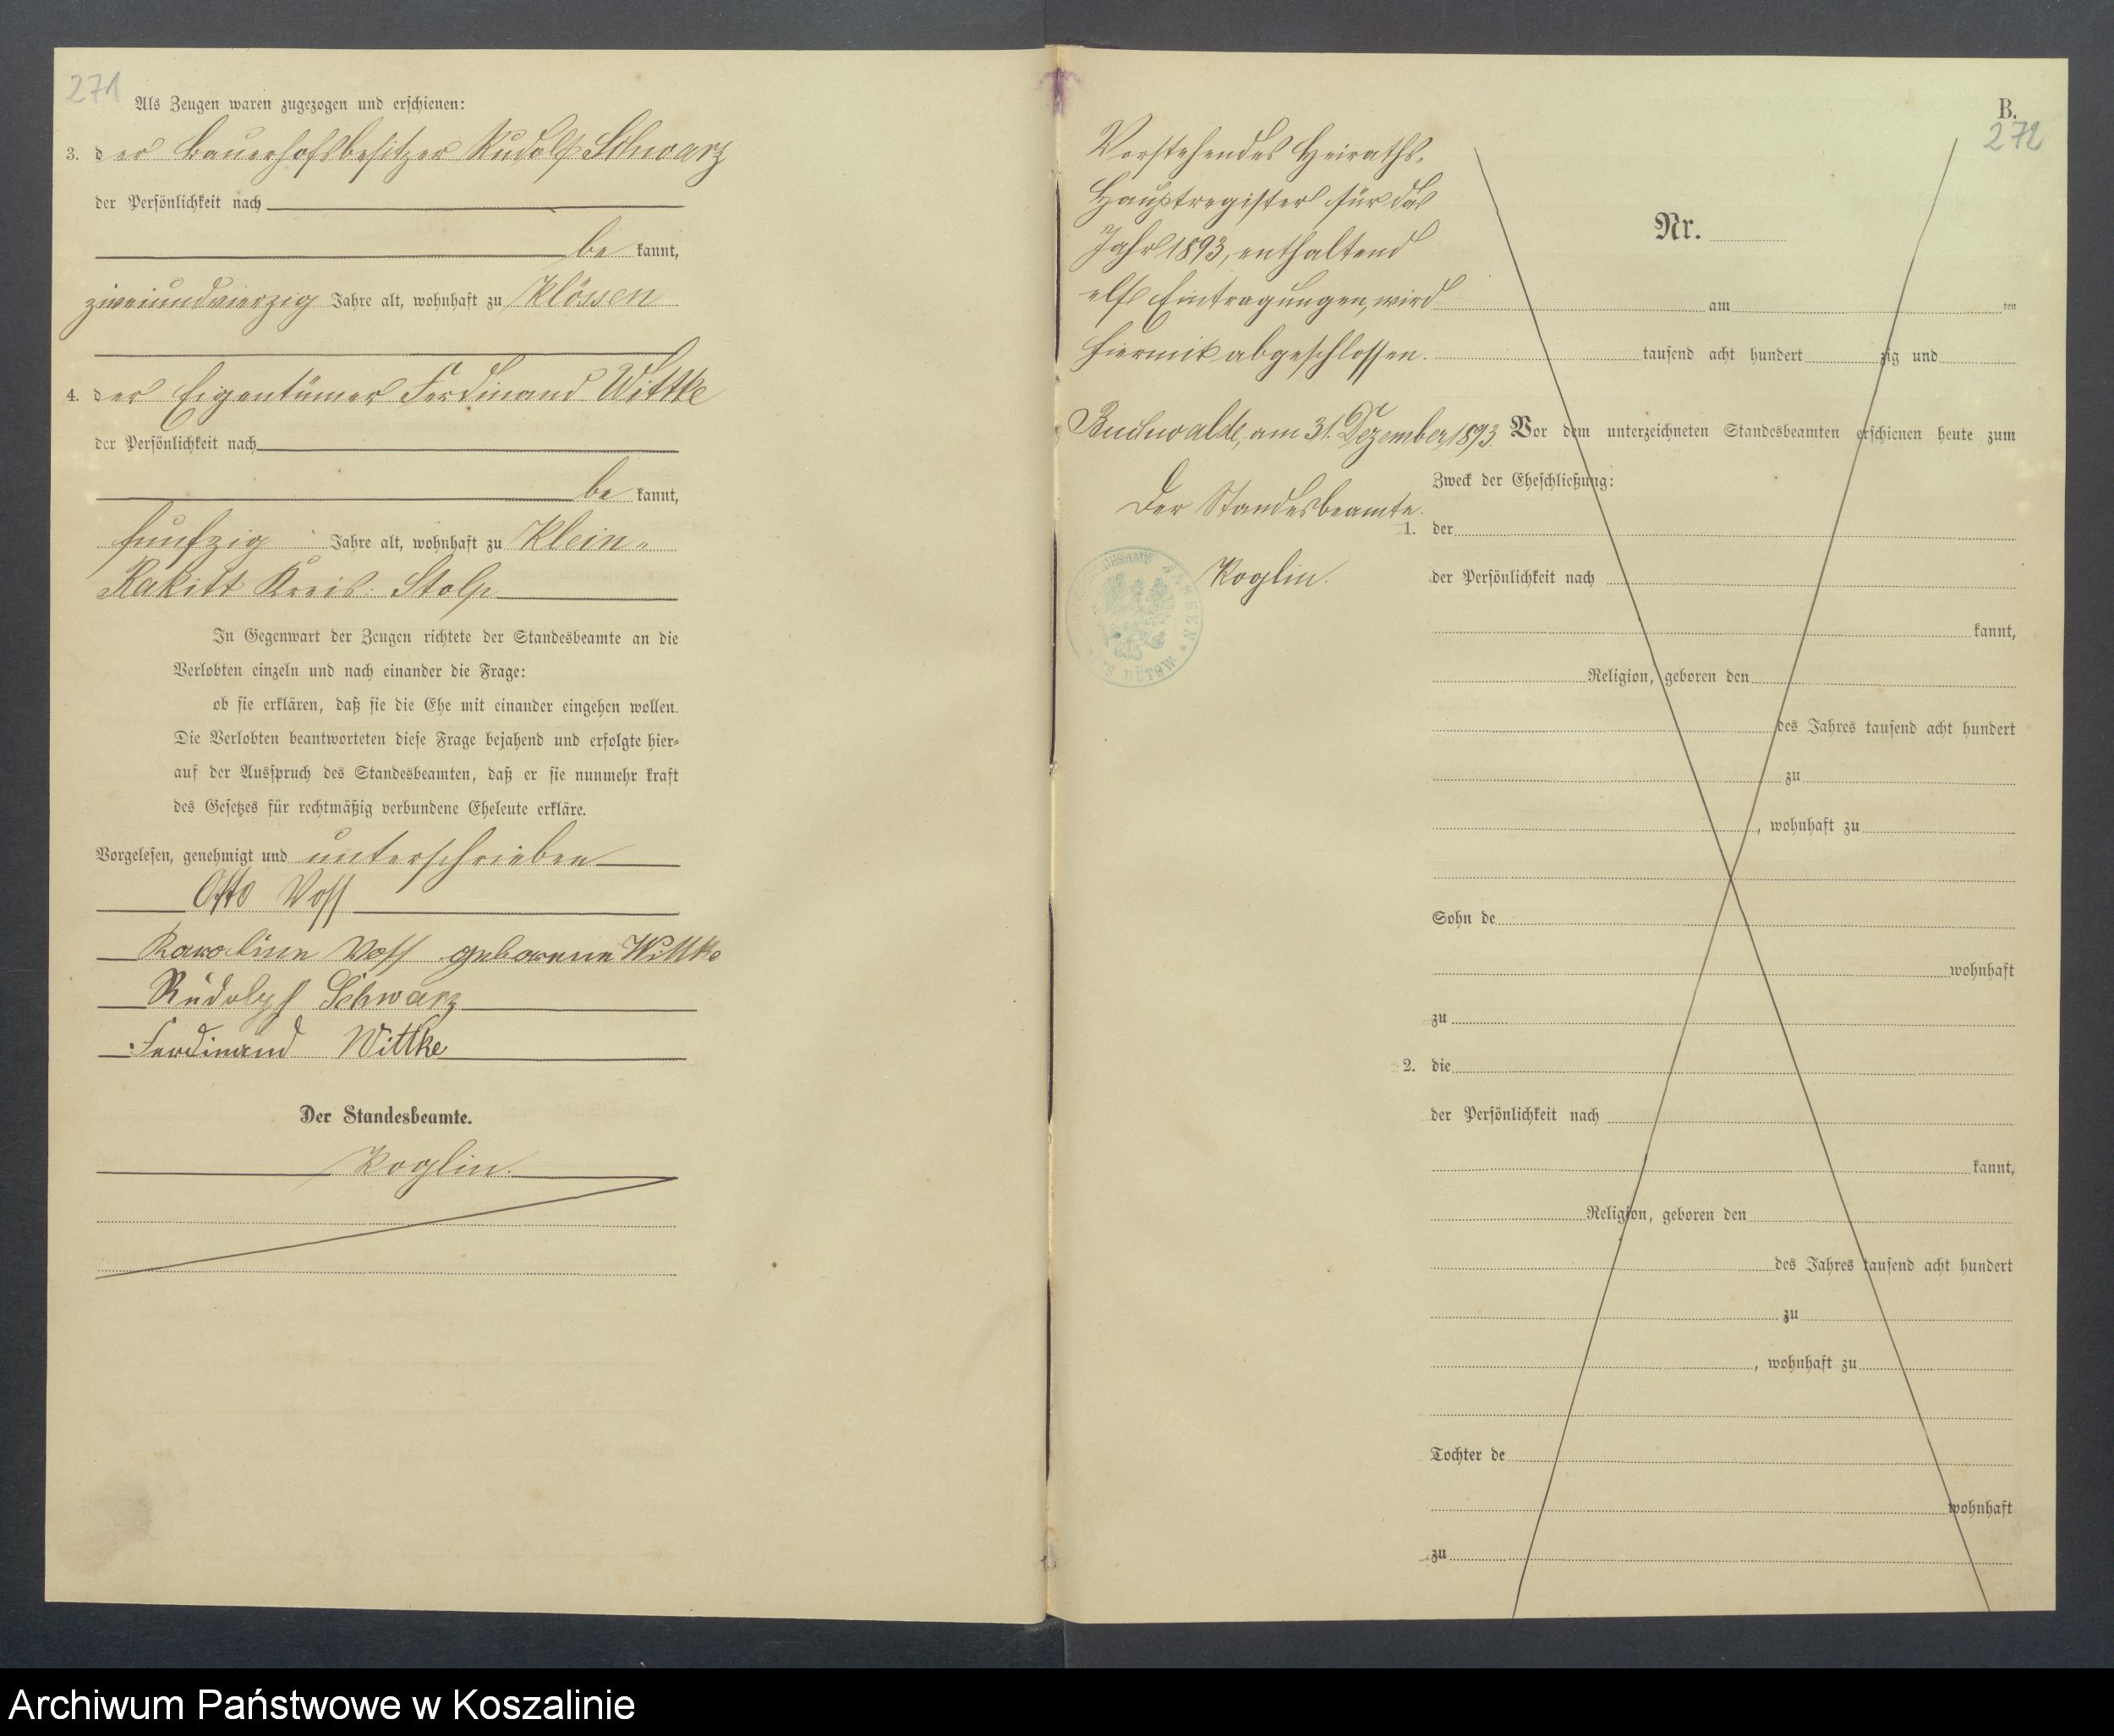 271
Als Zeugen waren zugezogen und erschienen:
3. der Bauerhofsbesitzer Rudolf Schwarz
der Persönlichkeit nach
be kannt,
zweiundvierzig Jahre alt, wohnhaft zu Klössen
4. der Eigentümer Ferdinand Wittke
der Persönlichkeit nach
be kannt,
funfzig Jahre alt, wohnhaft zu Klein-
Rakitt Kreis Stolp
In Gegenwart der Zeugen richtete der Standesbeamte an die
Verlobten einzeln und nach einander die Frage:
ob sie erklären, daß sie die Ehe mit einander eingehen wollen.
Die Verlobten beantworteten diese Frage bejahend und erfolgte hier-
auf der Ausspruch des Standesbeamten, daß er sie nunmehr kraft
des Gesetzes für rechtmäßig verbundene Eheleute erkläre.
Vorgelesen, genehmigt und unterschrieben
Otto Voss
Karoline Voss geborene Wittke
Rudolph Schwarz
Ferdinand Wittke
Der Standesbeamte.
Koglin.
B.
272
Vorstehendes Heiraths-
Hauptregister für das
Jahr 1893, enthaltend
elf Eintragungen, wird
hiermit abgeschlossen.
Buchwalde, am 31. Dezember 1893.
Der Standesbeamte.
Koglin.
BÜTOW
Nr.
am ten
tausend acht hundert zig und
Vor dem unterzeichneten Standesbeamten erschienen heute zum
Zweck der Eheschließung:
1. der
der Persönlichkeit nach
kannt,
Religion, geboren den
des Jahres tausend acht hundert
zu
, wohnhaft zu
Sohn de
wohnhaft
zu
2. die
der Persönlichkeit nach
kannt,
Religion, geboren den
des Jahres tausend acht hundert
zu
, wohnhaft zu
Tochter de
wohnhaft
zu
Archiwum Państwowe w Koszalinie